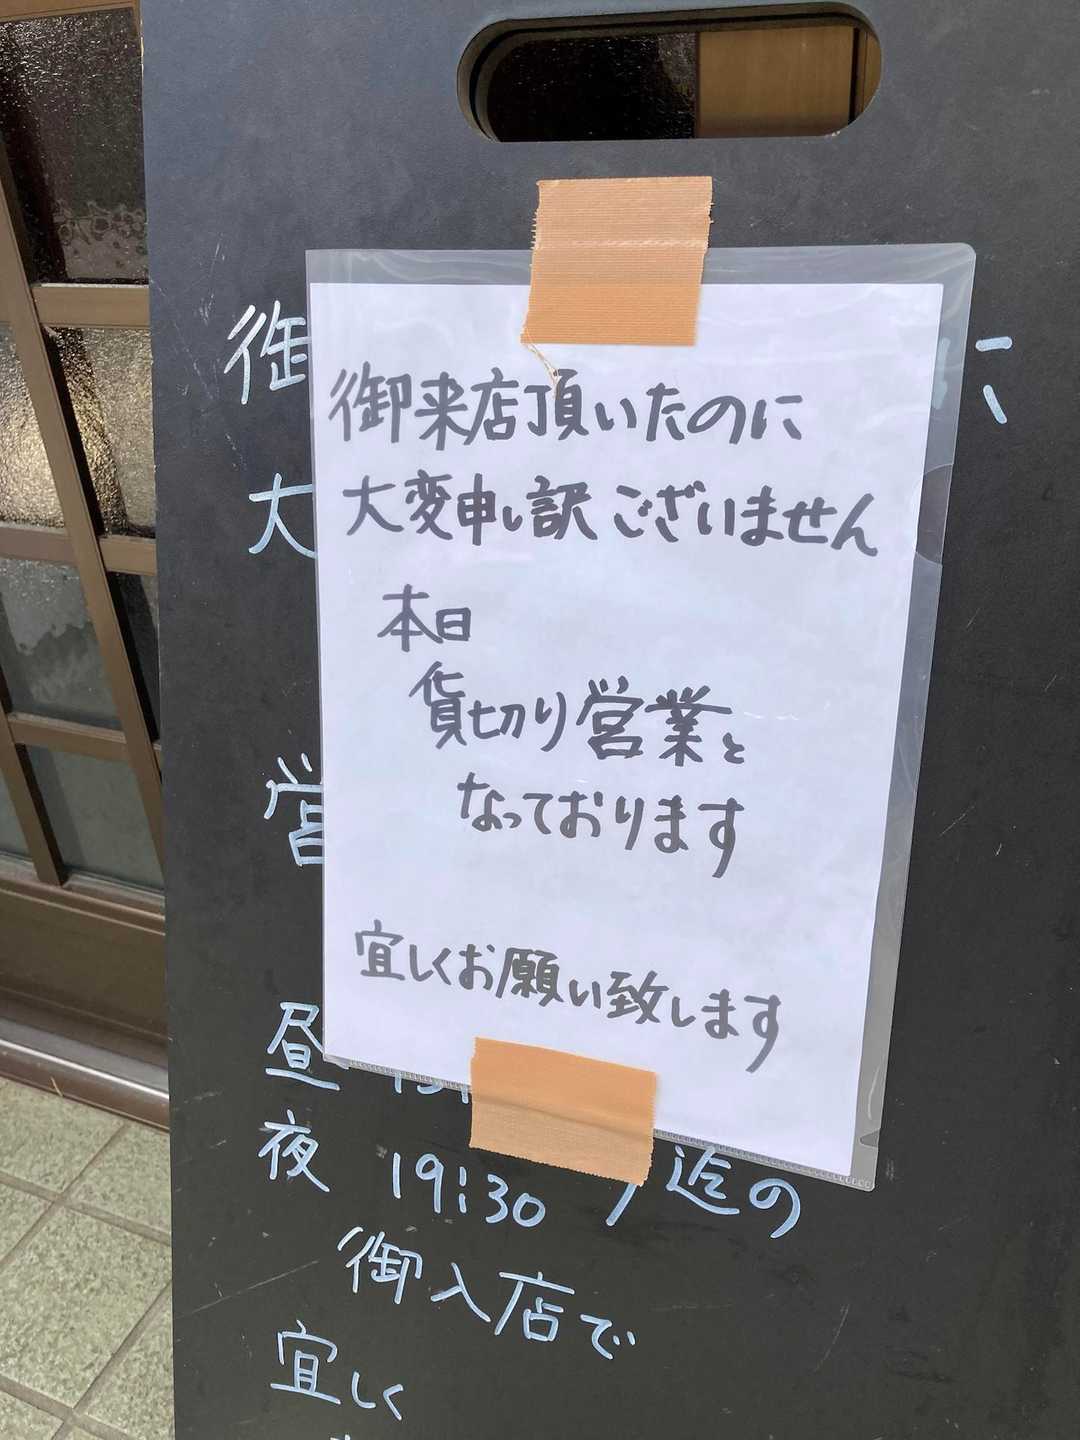 御来店頂いたのに
大変申し訳ございません
本日
貸切り営業と
なっております
宜しくお願い致します
御
大
営
昼
夜 19:30 迄の
御入店で
宜しく